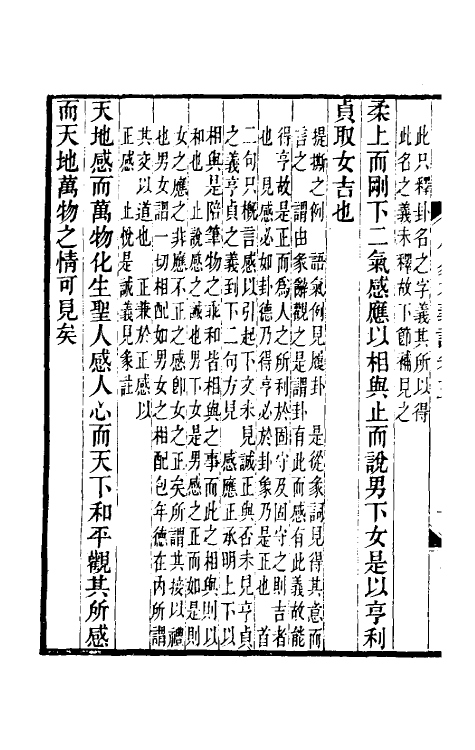 此只釋卦名之字義其所以得
此名之義未釋故下節補見之
柔上而剛下二氣感應以相與止而說男下女是以亨利
貞取女吉也
提撕之例　語氣例見履卦　是從彖詞見得其意而
言之　謂由彖辭觀之是謂卦有此而感有此義故能
得亨故是正而為人之所利於固守及固守之則吉者
也　見感必如卦德乃得亨必於卦象乃是正也　首
二句只概言感以引起下文未見誠正與否未見亨貞
之義亨貞之義到下二句方見　感應正承明上下以
相與是陪筆物之乖和皆相與之事而此之相與則以
和也　止說感之誠也男下女是男感之正而如是則
女之應之非應不正之感即女之正矣所謂其接以禮
也男女謂一切相配如男女之相配包年德在內所謂
其交以道也　正兼於正感以
正感　止悅是誠義見彖註
天地感而萬物化生聖人感人心而天下和平觀其所感
而天地萬物之情可見矣